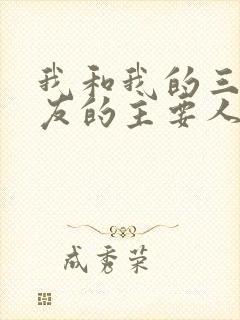 我和我的三
友的主要人
成秀荣